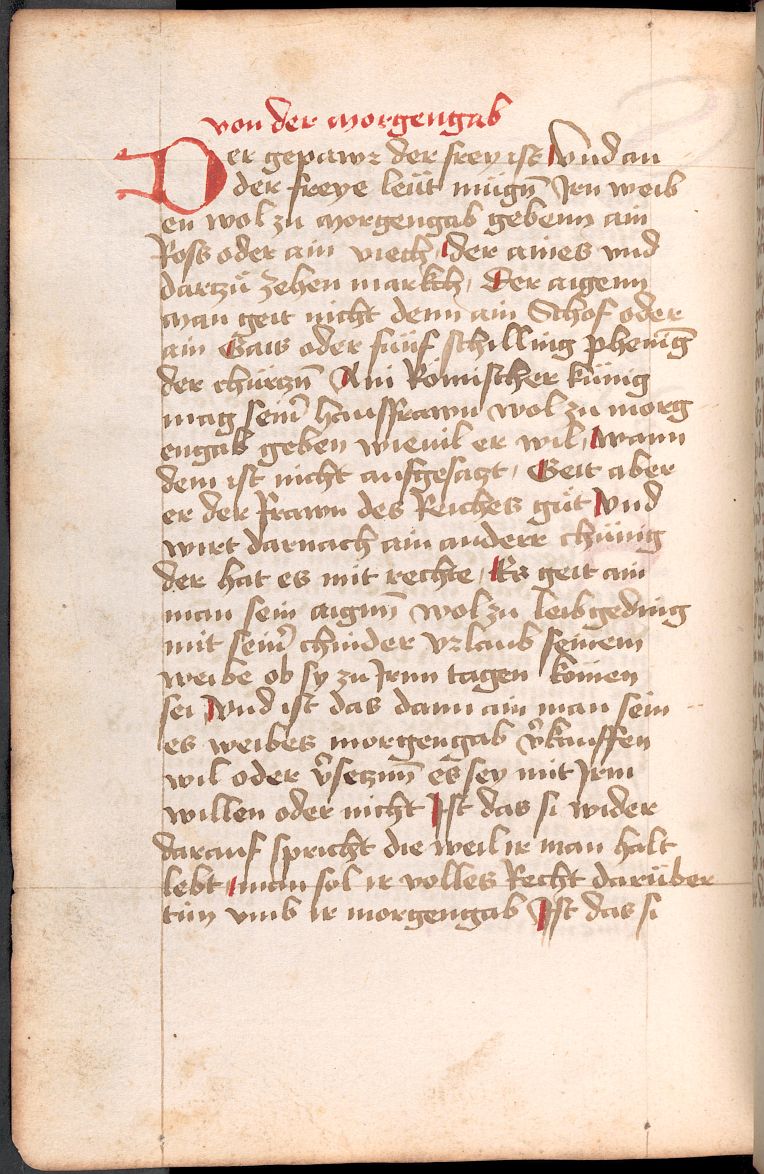 von der Morgengab
Der gepawr der frey ist Vnd an
der freye leüt mügn̄ Jrn weib
en wol zu Morgengab gebenn ain
Ross oder ain viech, der aines vnd
dartzu zehen markch, Der aigenn
Man geit nicht denn ain Schof oder
ain Gais oder fünf schilling phenīg
der chürtzn̄ Ain Romischer künig
mag seinē hausfrawn wol zu morg
engab geben wieuil er wil, wann
dem ist nicht aufgesatzt, Geit aber
er der frawn des Reiches güt Vnd
wirt darnach ain anderr chünig
der hat es mit rechte, Es geit ain
man sein aignn̄ wol zu leibgeding
mit seinē chinder vrlaub seinem
weibe ob sy zu Jrnn tagen komen
sei Vnd ist das dann ain man sein
es weibes morgengab v̄kauffen
wil oder v̄setznn̄ es sey mit Jrm
willen oder nicht Jst das si wider
darauf spricht die weil ir man halt
lebt, man sol ir volles Recht darüber
tün vmb ir morgengab Jst das si